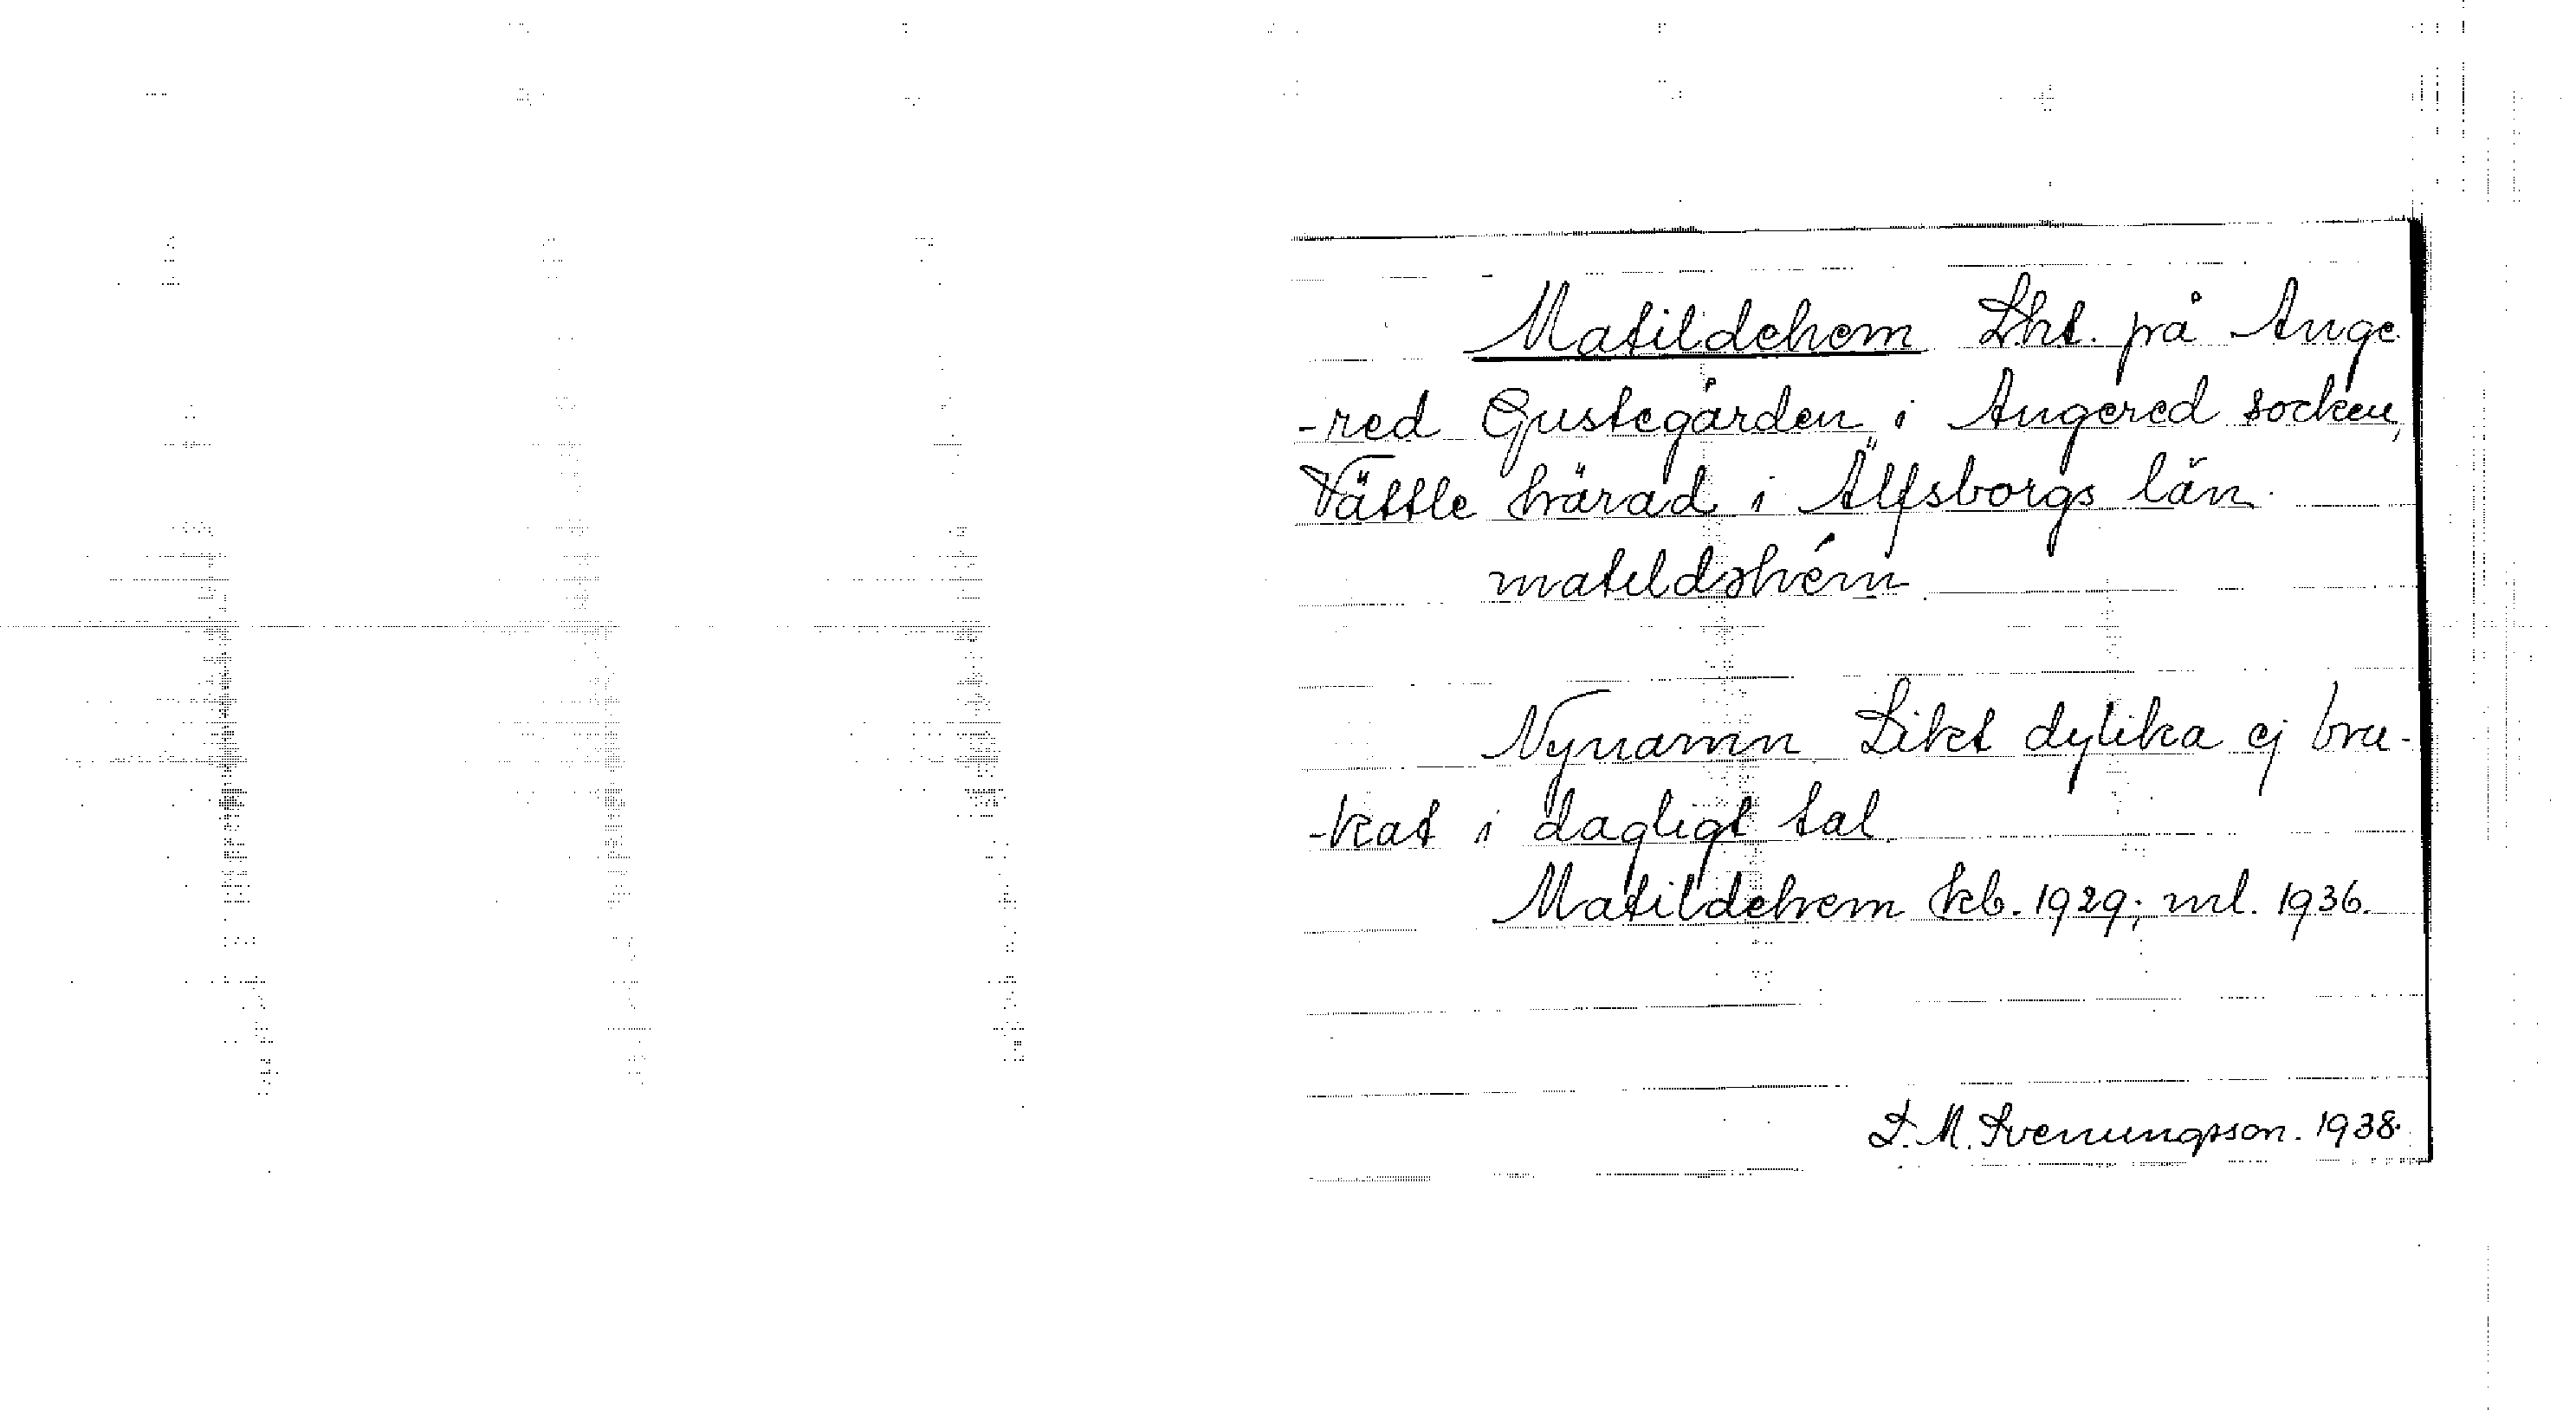 Matildehem Lht. på Ange
-red Gustegården i Angered socken,
Vättle härad i Älfsborgs län.
matildəhém
Nynamn Likt dylika ej bru-
-kat i dagligt tal.
Matildehem kb. 1929; ml. 1936.
S. M. Svenungsson. 1938.